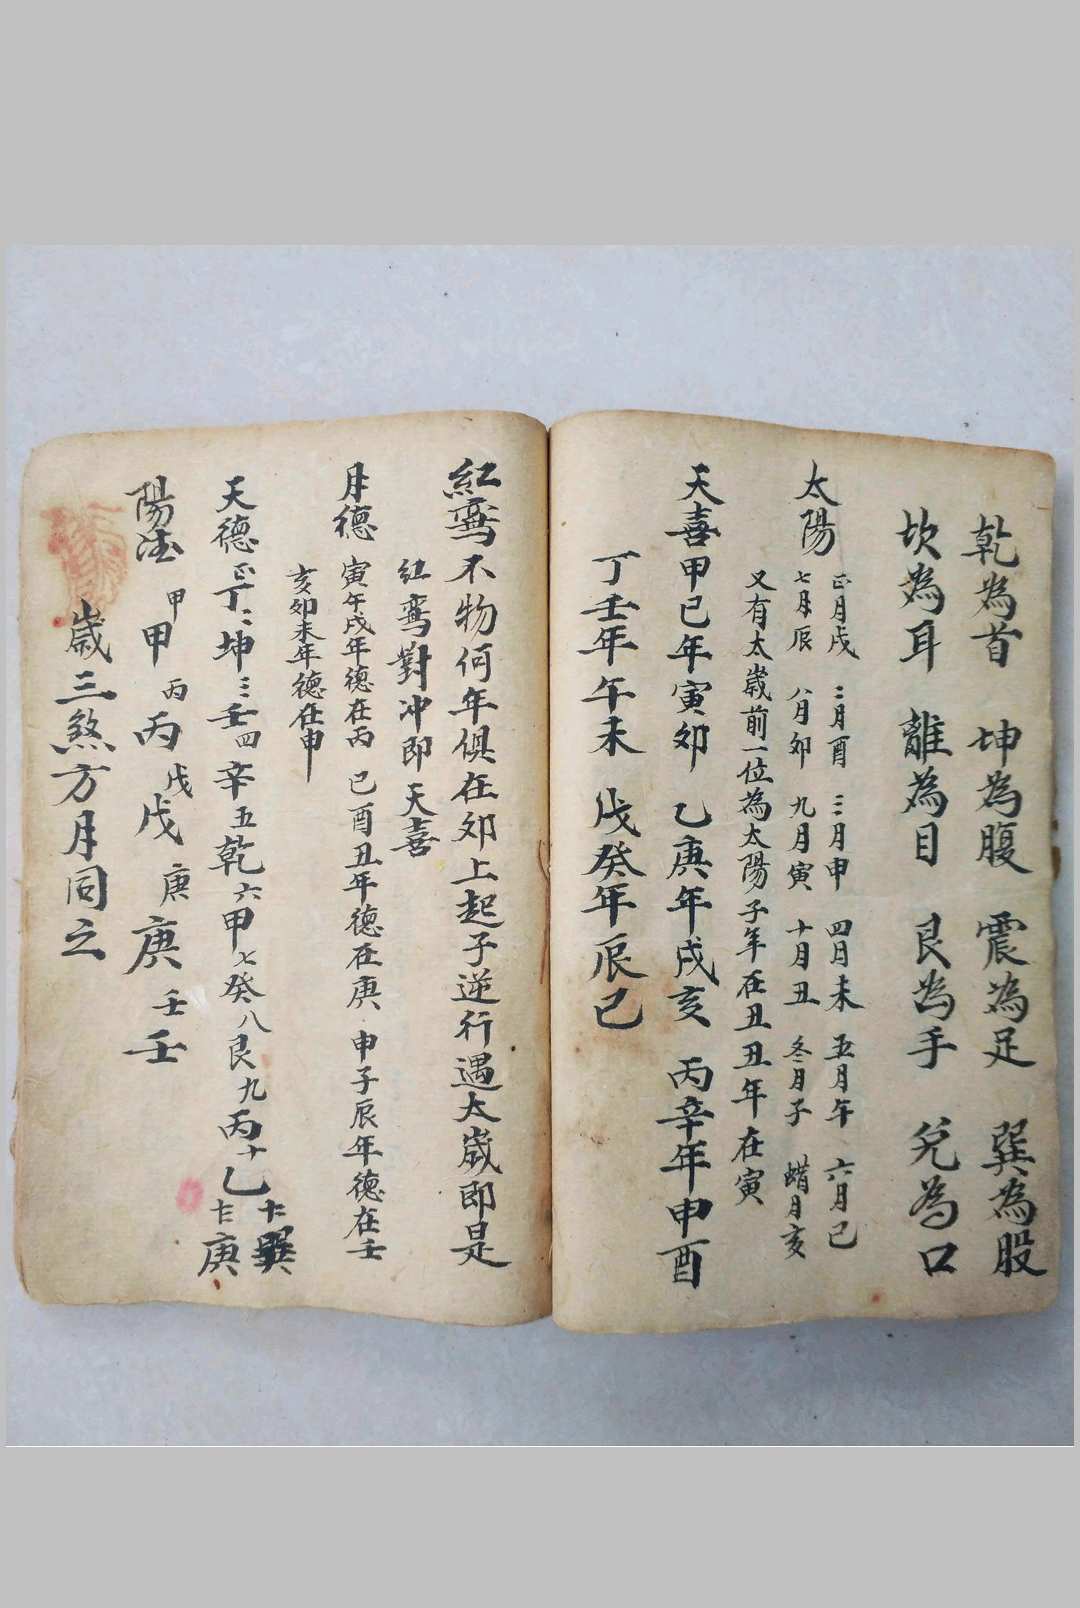 乾為首　坤為腹　震為足　巽為股
坎為耳　離為目　艮為手　兌為口
太陽
正月戌　二月酉　三月申　四月未　五月午　六月巳
七月辰　八月卯　九月寅　十月丑　冬月子　蜡月亥
又有太歲前一位為太陽子年在丑丑年在寅
天喜甲己年寅卯　乙庚年戌亥　丙辛年申酉
丁壬年午未　戊癸年辰巳
紅鸞不物何年俱在卯上起子逆行遇太歲即是
紅鸞對冲即天喜
月德　寅午戌年德在丙　巳酉丑年德在庚　申子辰年德在壬
亥卯未年德在申
天德正丁二坤三壬四辛五乾六甲七癸八艮九丙十乙
十巽
庚
陽
甲甲　丙丙　戊戊　庚庚　壬壬
歲三煞方月同之